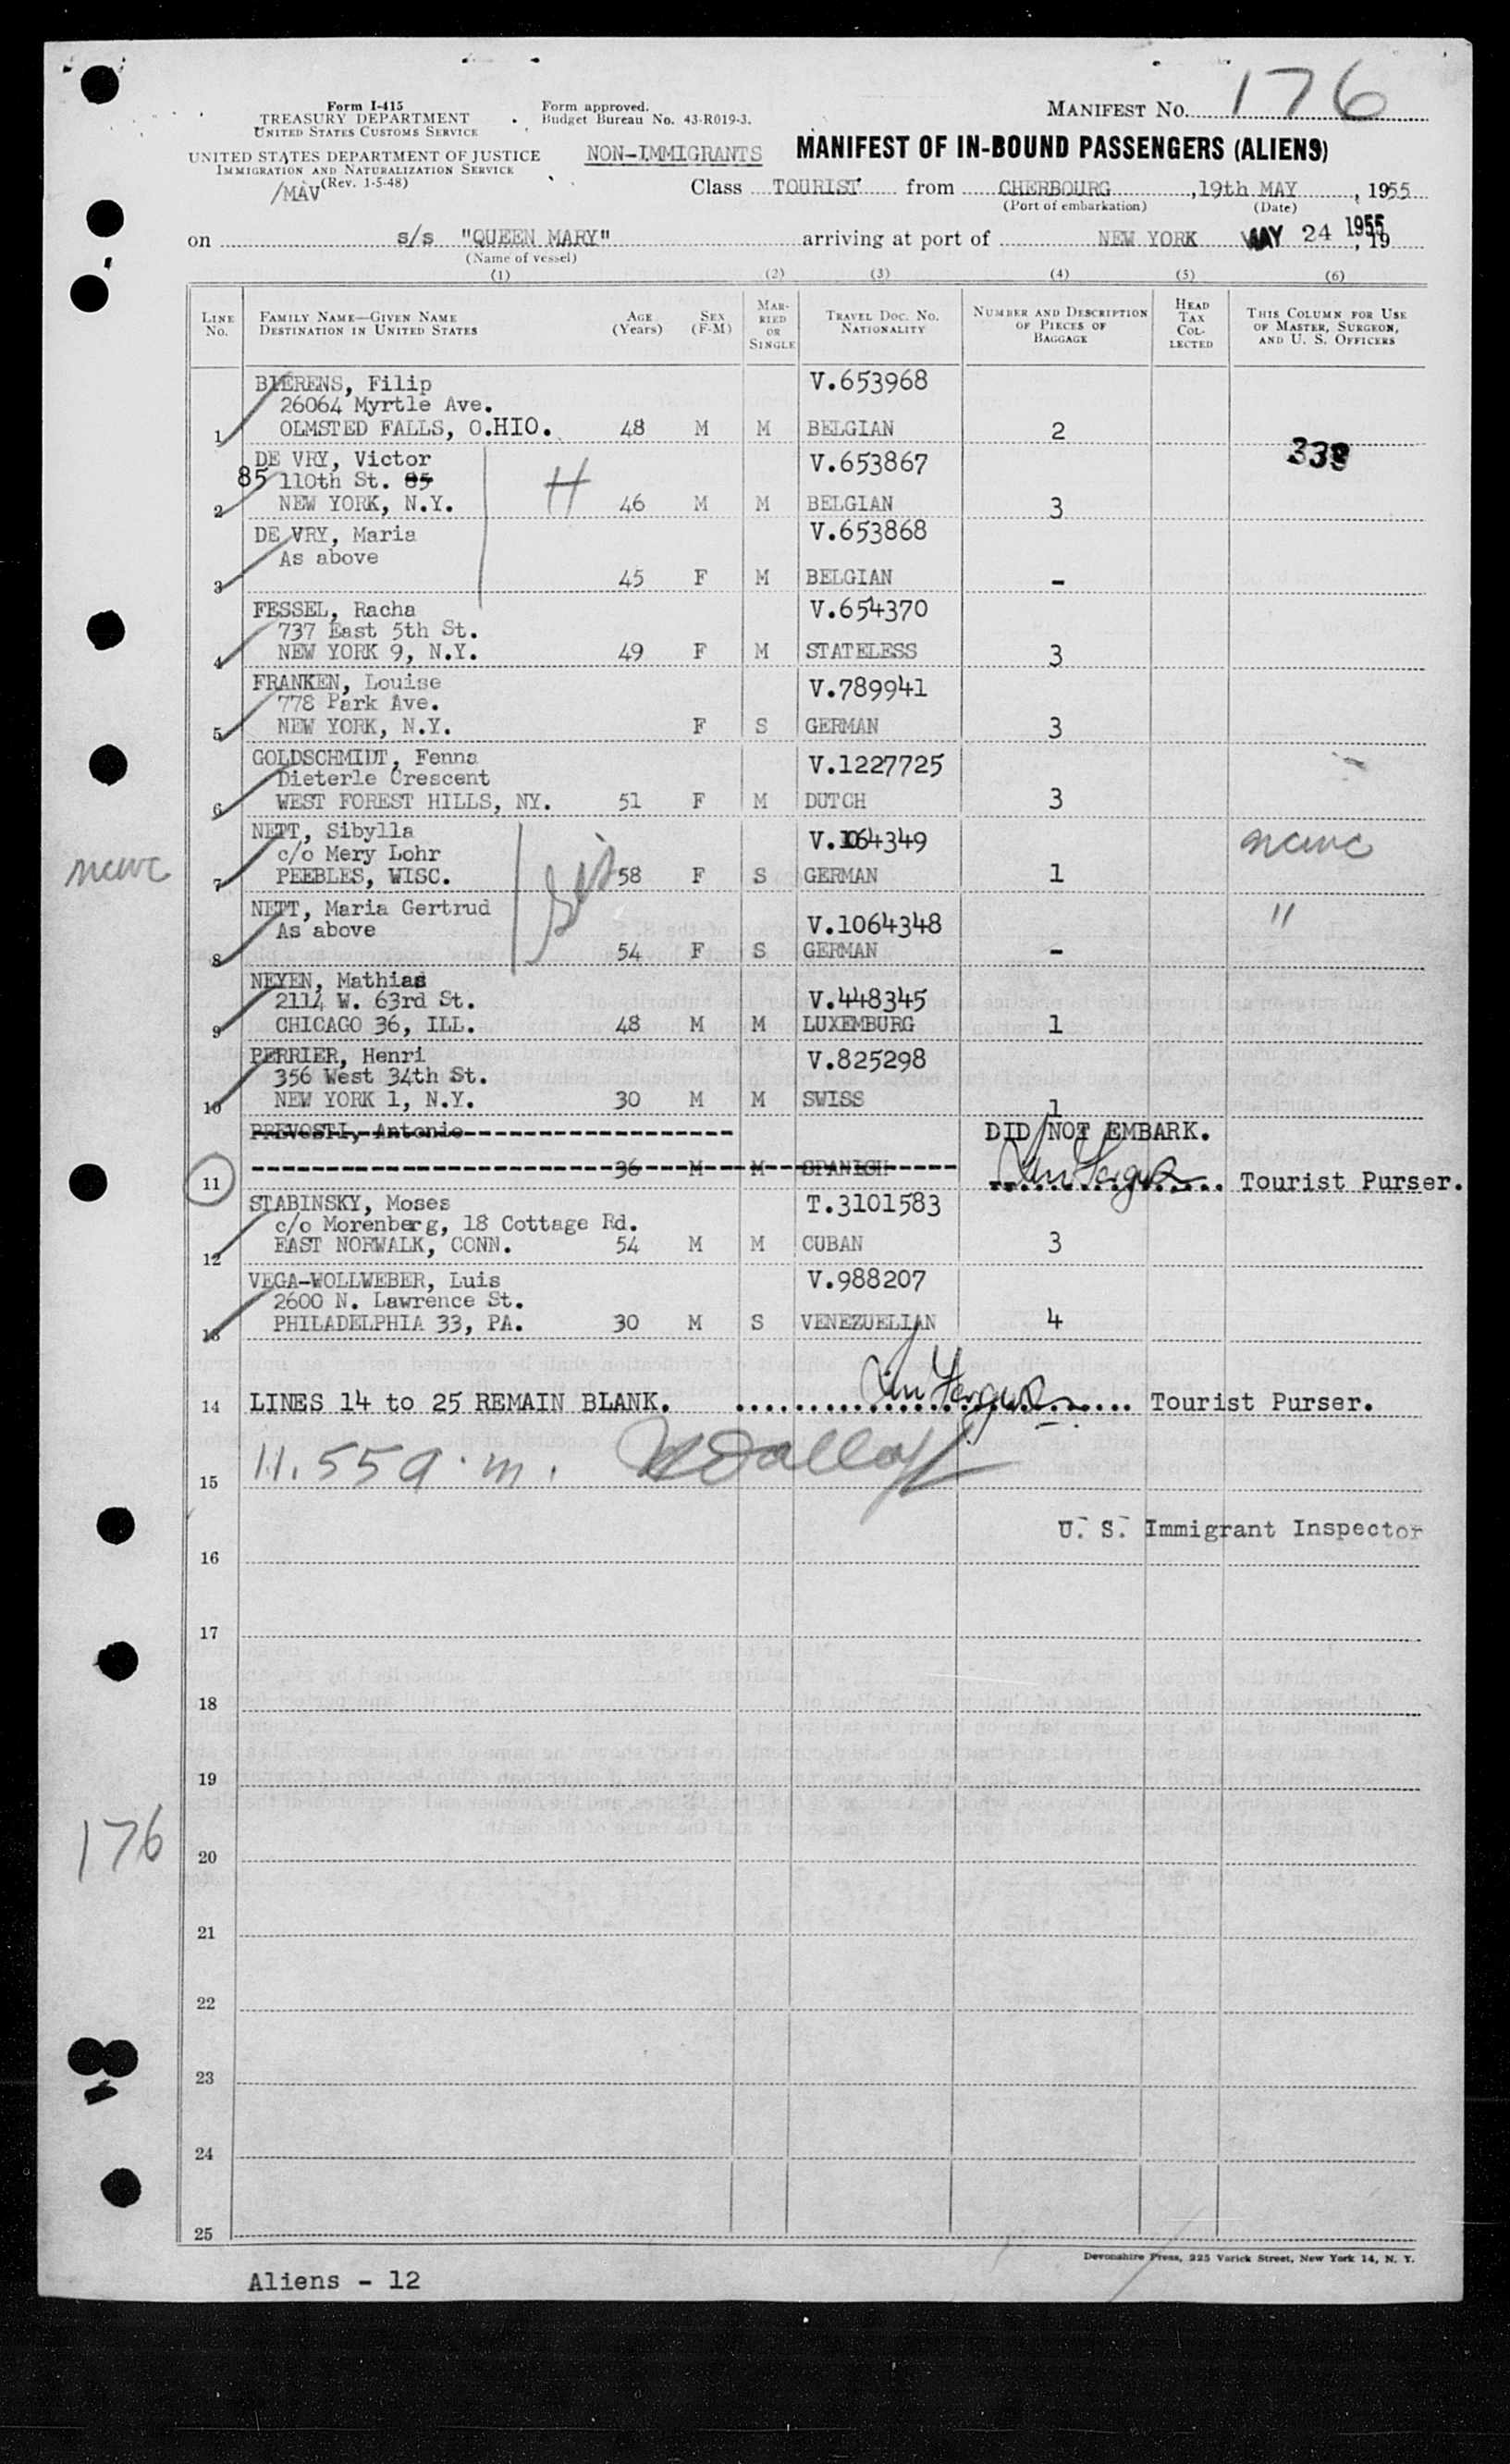 MANIFEST NO. 176
Form I-415
TREASURY DEPARTMENT
UNITED STATES CUSTOMS SERVICE
Form approved.
Budget Bureau No. 43-R019-3.
UNITED STATES DEPARTMENT OF JUSTICE
IMMIGRATION AND NATURALIZATION SERVICE
(Rev. 1-5-48)
/MAV
NON-IMMIGRANTS MANIFEST OF IN-BOUND PASSENGERS (ALIENS)
Class TOURIST from CHERBOURG, 19th MAY, 1955
(Port of embarkation) (Date)
on s/s "QUEEN MARY" arriving at port of NEW YORK MAY 24 1955, 19
(Name of vessel)
(1) (2) (3) (4) (5) (6)
LINE NO. FAMILY NAME—GIVEN NAME DESTINATION IN UNITED STATES AGE (Years) SEX (F-M) MARRIED OR SINGLE TRAVEL DOC. NO. NATIONALITY NUMBER AND DESCRIPTION OF PIECES OF BAGGAGE HEAD TAX COLLECTED THIS COLUMN FOR USE OF MASTER, SURGEON, AND U. S. OFFICERS
BIERENS, Filip V.653968
26064 Myrtle Ave.
1 OLMSTED FALLS, O.HIO. 48 M M BELGIAN 2
338
DE VRY, Victor V.653867
85 110th St. 85 H
2 NEW YORK, N.Y. 46 M M BELGIAN 3
DE VRY, Maria V.653868
As above
3 45 F M BELGIAN -
FESSEL, Racha V.654370
737 East 5th St.
4 NEW YORK 9, N.Y. 49 F M STATELESS 3
FRANKEN, Louise V.789941
778 Park Ave.
5 NEW YORK, N.Y. F S GERMAN 3
GOLDSCHMIDT, Fenna V.1227725
Dieterle Crescent
6 WEST FOREST HILLS, NY. 51 F M DUTCH 3
NETT, Sibylla V.1064349 ncwc
c/o Mery Lohr
ncwc 7 PEEBLES, WISC. sis 58 F S GERMAN 1
NETT, Maria Gertrud V.1064348 "
As above
8 54 F S GERMAN -
NEYEN, Mathias V.448345
2114 W. 63rd St.
9 CHICAGO 36, ILL. 48 M M LUXEMBURG 1
PERRIER, Henri V.825298
356 West 34th St.
10 NEW YORK 1, N.Y. 30 M M SWISS 1
PREVOSTI, Antonio DID NOT EMBARK.
11 36 M M SPANISH Tourist Purser.
STABINSKY, Moses T.3101583
c/o Morenberg, 18 Cottage Rd.
12 EAST NORWALK, CONN. 54 M M CUBAN 3
VEGA-WOLLWEBER, Luis V.988207
2600 N. Lawrence St.
13 PHILADELPHIA 33, PA. 30 M S VENEZUELIAN 4
14 LINES 14 to 25 REMAIN BLANK. Tourist Purser.
15 11.55 a.m.
U. S. Immigrant Inspector
16
17
18
19
176
20
21
22
23
24
25
Devonshire Press, 225 Varick Street, New York 14, N. Y.
Aliens - 12